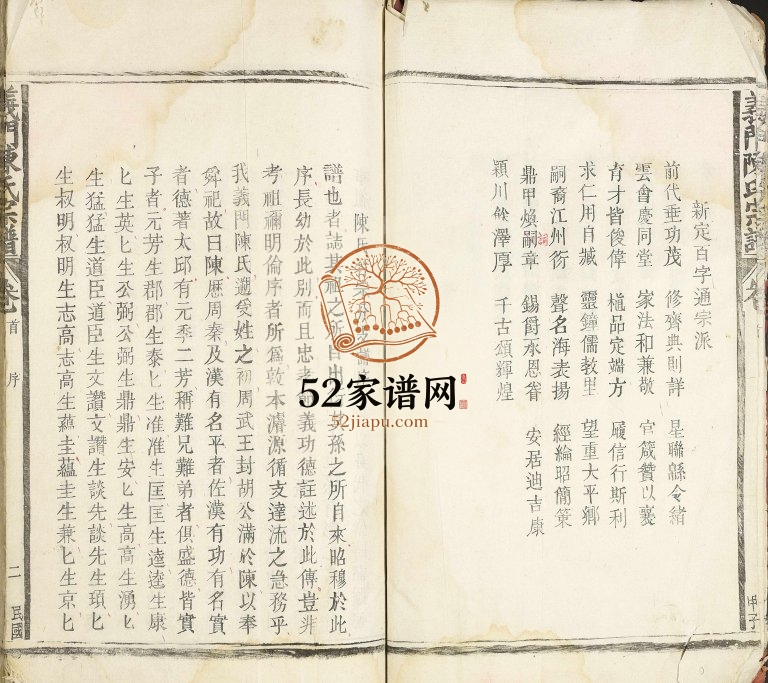 義門陳氏宗譜
新定百字通宗派
前代垂功茂 修齊典則詳 星聯緜令緒
雲會慶同堂 家法和兼敬 官箴贊以襄
育才皆俊偉 植品定端方 履信行斯利
求仁用自臧 靈鐘儒教里 望重大平鄉
嗣裔江州衍 聲名海表揚 經綸昭簡策
鼎甲煥嗣章 錫爵承恩眷 安居迪吉康
潁川餘澤厚 千古頌輝煌
甲子
陳氏
譜也者誌其 之所自出 孫之所自來昭穆於此
序長幼於此別而且忠孝 義功德註述於此傳豈非
考祖禰明倫序者所爲敦本濬源循支達流之急務乎
我義門陳氏遡受姓之初周武王封胡公滿於陳以奉
舜祀故曰陳歷周秦及漢有名平者佐漢有功有名實
者德著太邱有元季二芳稱難兄難弟者俱盛德皆實
子者元芳生郡郡生泰匕生准准生匡匡生逵逵生康
匕生英匕生公弼公弼生鼎鼎生安匕生高高生湧匕
生猛猛生道臣道臣生文讚文讚生談先談先生頊匕
生叔明叔明生志高志高生蘊圭蘊圭生兼匕生京匕
義門陳氏宗譜
卷
首
序
二
民國
52家谱网
52jiapu.com